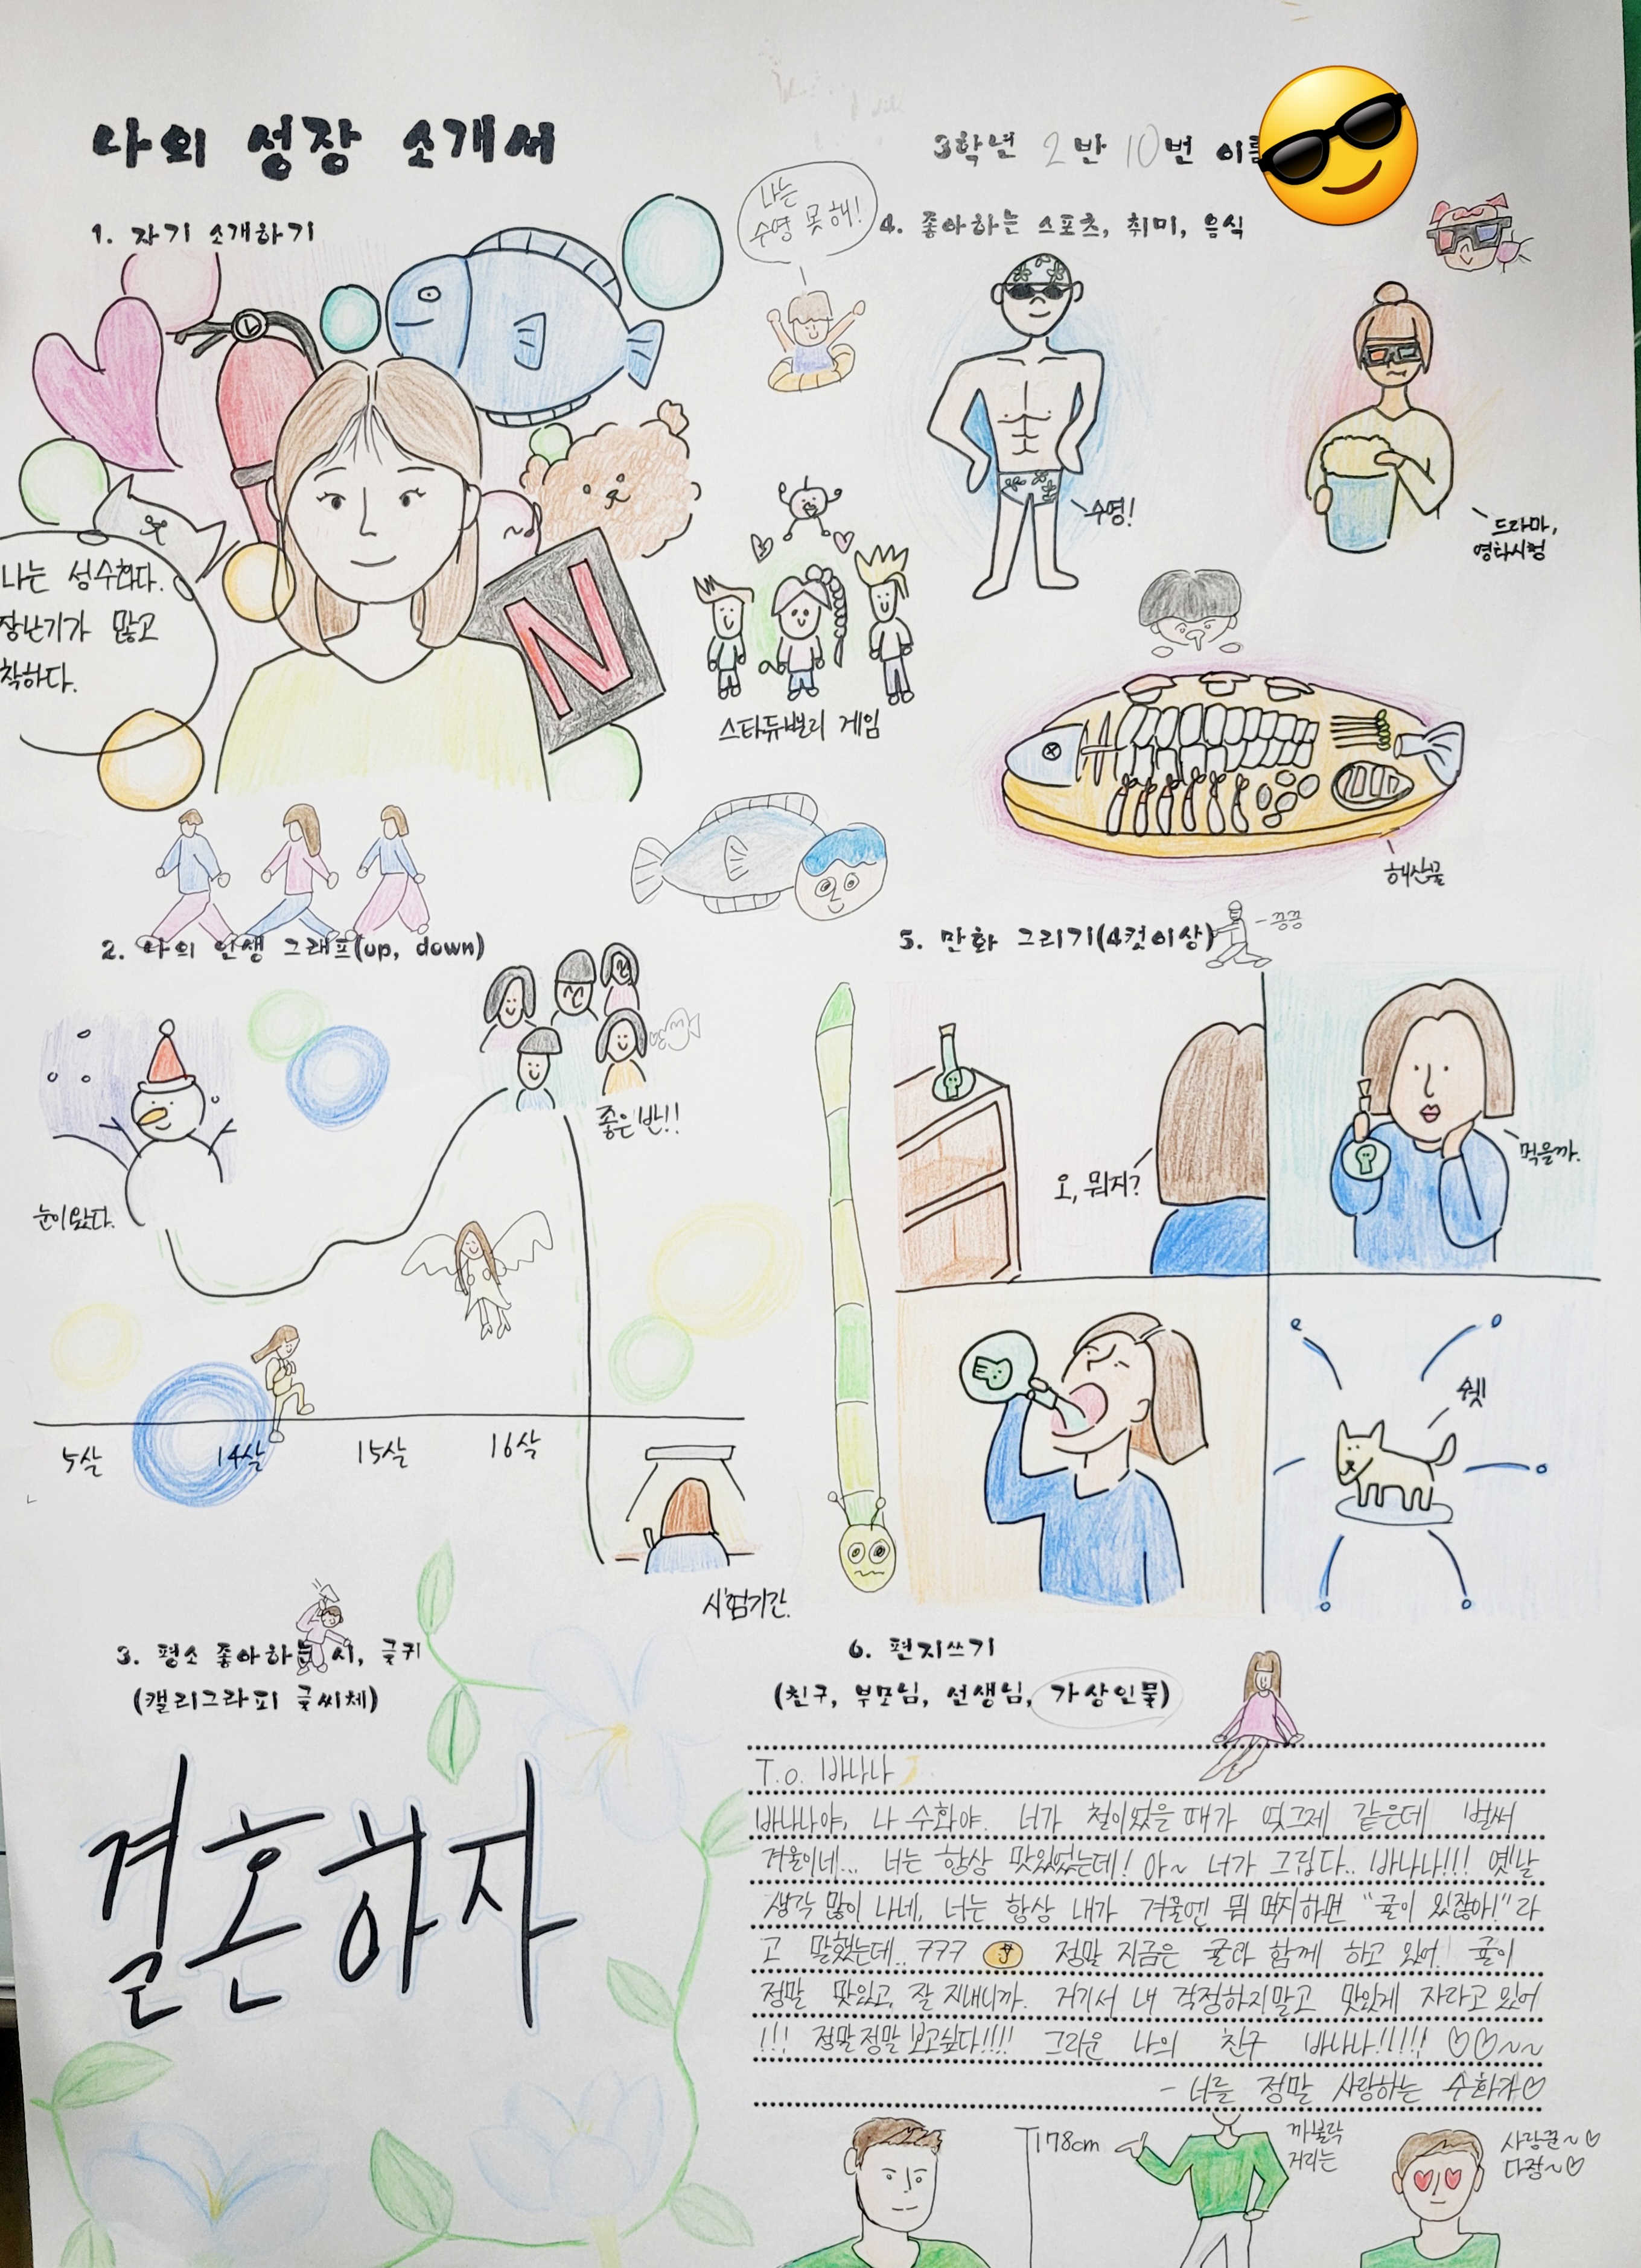 나의 성장 소개서
3학년 2반 10번 이름
1. 자기 소개하기
나는 성수화다.
장난기가 많고
착하다.
N
나는
수영 못 해!
스타듀밸리 게임
2. 나의 인생 그래프(up, down)
눈이 왔다.
좋은 반!!
5살 14살 15살 16살
시험기간.
3. 평소 좋아하는 시, 글귀
(캘리그라피 글씨체)
결혼하자
4. 좋아하는 스포츠, 취미, 음식
수영!
드라마,
영화시청
해산물
5. 만화 그리기(4컷이상)
- 끙끙
오, 뭐지?
먹을까.
쉣
6. 편지쓰기
(친구, 부모님, 선생님, 가상인물)
T.o. 바나나
바나나야, 나 수화야. 너가 철이었을 때가 엊그제 같은데 벌써
겨울이네... 너는 항상 맛있었는데! 아~ 너가 그립다.. 바나나!!! 옛날
생각 많이 나네, 너는 항상 내가 겨울엔 뭐 먹지하면 "귤이 있잖아!"라
고 말했는데.. ㅋㅋㅋ 정말 지금은 귤과 함께 하고 있어. 귤이
정말 맛있고, 잘 지내니까. 거기서 내 걱정하지말고 맛있게 자라고 있어
!!! 정말정말 보고싶다!!!! 그리운 나의 친구 바나나!!!!! ♡♡~~
- 너를 정말 사랑하는 수화가♡
178cm
까불락
거리는
사랑꾼~♡
다정~♡